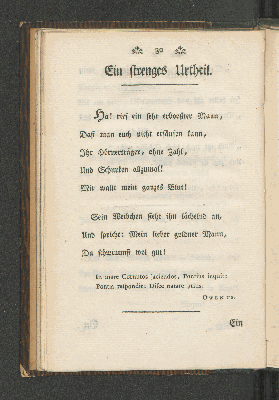 30
Ein strenges Urtheil.
Ha! rief ein sehr erboßter Mann,
Daß man euch nicht ersäufen kann,
Ihr Hörnerträger, ohne Zahl,
Und Schurken allzumal!
Mir wallt mein ganzes Blut!
Sein Weibchen sieht ihn lächelnd an,
Und spricht: Mein lieber goldner Mann,
Du schwimmst wol gut!
In mare Cornutos jaciendos, Pontius inquit:
Pontia respondit: Disce natare prius.
OWENUS.
Ein